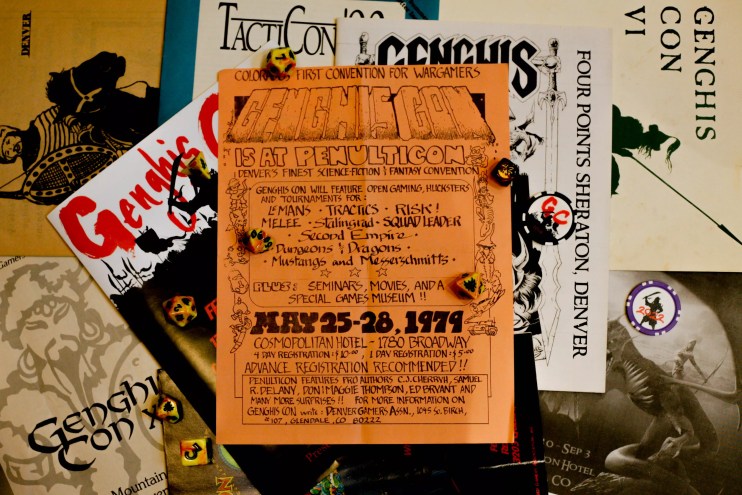 DENVER
TACTICON '92
GENGHIS
FOUR POINTS SHERATON, DENVER
GENGHIS
CON
VI
COLORADO'S FIRST CONVENTION FOR WARGAMERS
GENGHIS CON
IS AT PENULTICON
DENVER'S FINEST SCIENCE-FICTION & FANTASY CONVENTION
GENGHIS CON WILL FEATURE OPEN GAMING, HUCKSTERS
AND TOURNAMENTS FOR:
LE MANS · TRACTICS · RISK!
MELEE · Stalingrad · SQUAD LEADER
· Second Empire ·
Dungeons & Dragons ·
· Mustangs and Messerschmitts ·
PLUS: SEMINARS, MOVIES, AND A
SPECIAL GAMES MUSEUM !!
MAY 25-28, 1979
COSMOPOLITAN HOTEL - 1780 BROADWAY
4 DAY REGISTRATION: $10.00, 1 DAY REGISTRATION: $5.00
ADVANCE REGISTRATION RECOMMENDED!!
PENULTICON FEATURES PRO AUTHORS C.J. CHERRYH, SAMUEL
R. DELANY, DON & MAGGIE THOMPSON, ED BRYANT AND
MANY MORE SURPRISES!! FOR MORE INFORMATION ON
GENGHIS CON write: DENVER GAMERS ASSN., 1045 So. BIRCH,
#107, GLENDALE, CO 80222
Genghis
GC
Genghis
Con X
Mountain
CO
- SEP 3